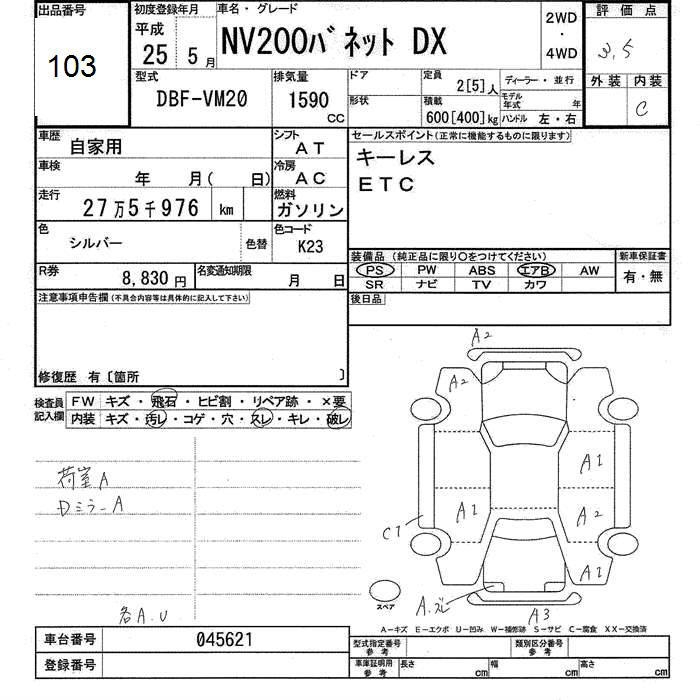 出品番号
103
初度登録年月
平成
25 5 月
車名・グレード
NV200バネット DX
2WD
・
4WD
評価点
3.5
外装 内装
C
型式
DBF-VM20
排気量
1590
CC
ドア
形状
定員
2[5]人
積載
600[400]kg
ディーラー・並行
モデル年式 年
ハンドル 左・右
車歴
自家用
シフト
AT
車検
年 月( 日)
冷房
AC
走行
27万5千976 km
燃料
ガソリン
色
シルバー
色替
色コード
K23
R券
8,830 円
名変通知期限
月 日
セールスポイント(正常に機能するものに限ります)
キーレス
ETC
装備品 (純正品に限り○をつけてください)
PS PW ABS エアB AW
SR ナビ TV カワ
新車保証書
有・無
後日品
注意事項申告欄(不具合内容等は具体的に記入して下さい)
修復歴 有〔箇所 〕
検査員
記入欄
FW キズ・飛石・ヒビ割・リペア跡・×要
内装 キズ・汚レ・コゲ・穴・スレ・キレ・破レ
荷室A
Dミラー A
各A.U
A2
A2
A1
A1
A2
C1
A1
A.ズレ
A3
スペア
A－キズ E－エクボ U－凹み W－補修跡 S－サビ C－腐食 XX－交換済
車台番号 045621
登録番号
型式指定番号
参考
類別区分番号
参考
車庫証明用
参考
長さ cm
幅 cm
高さ cm